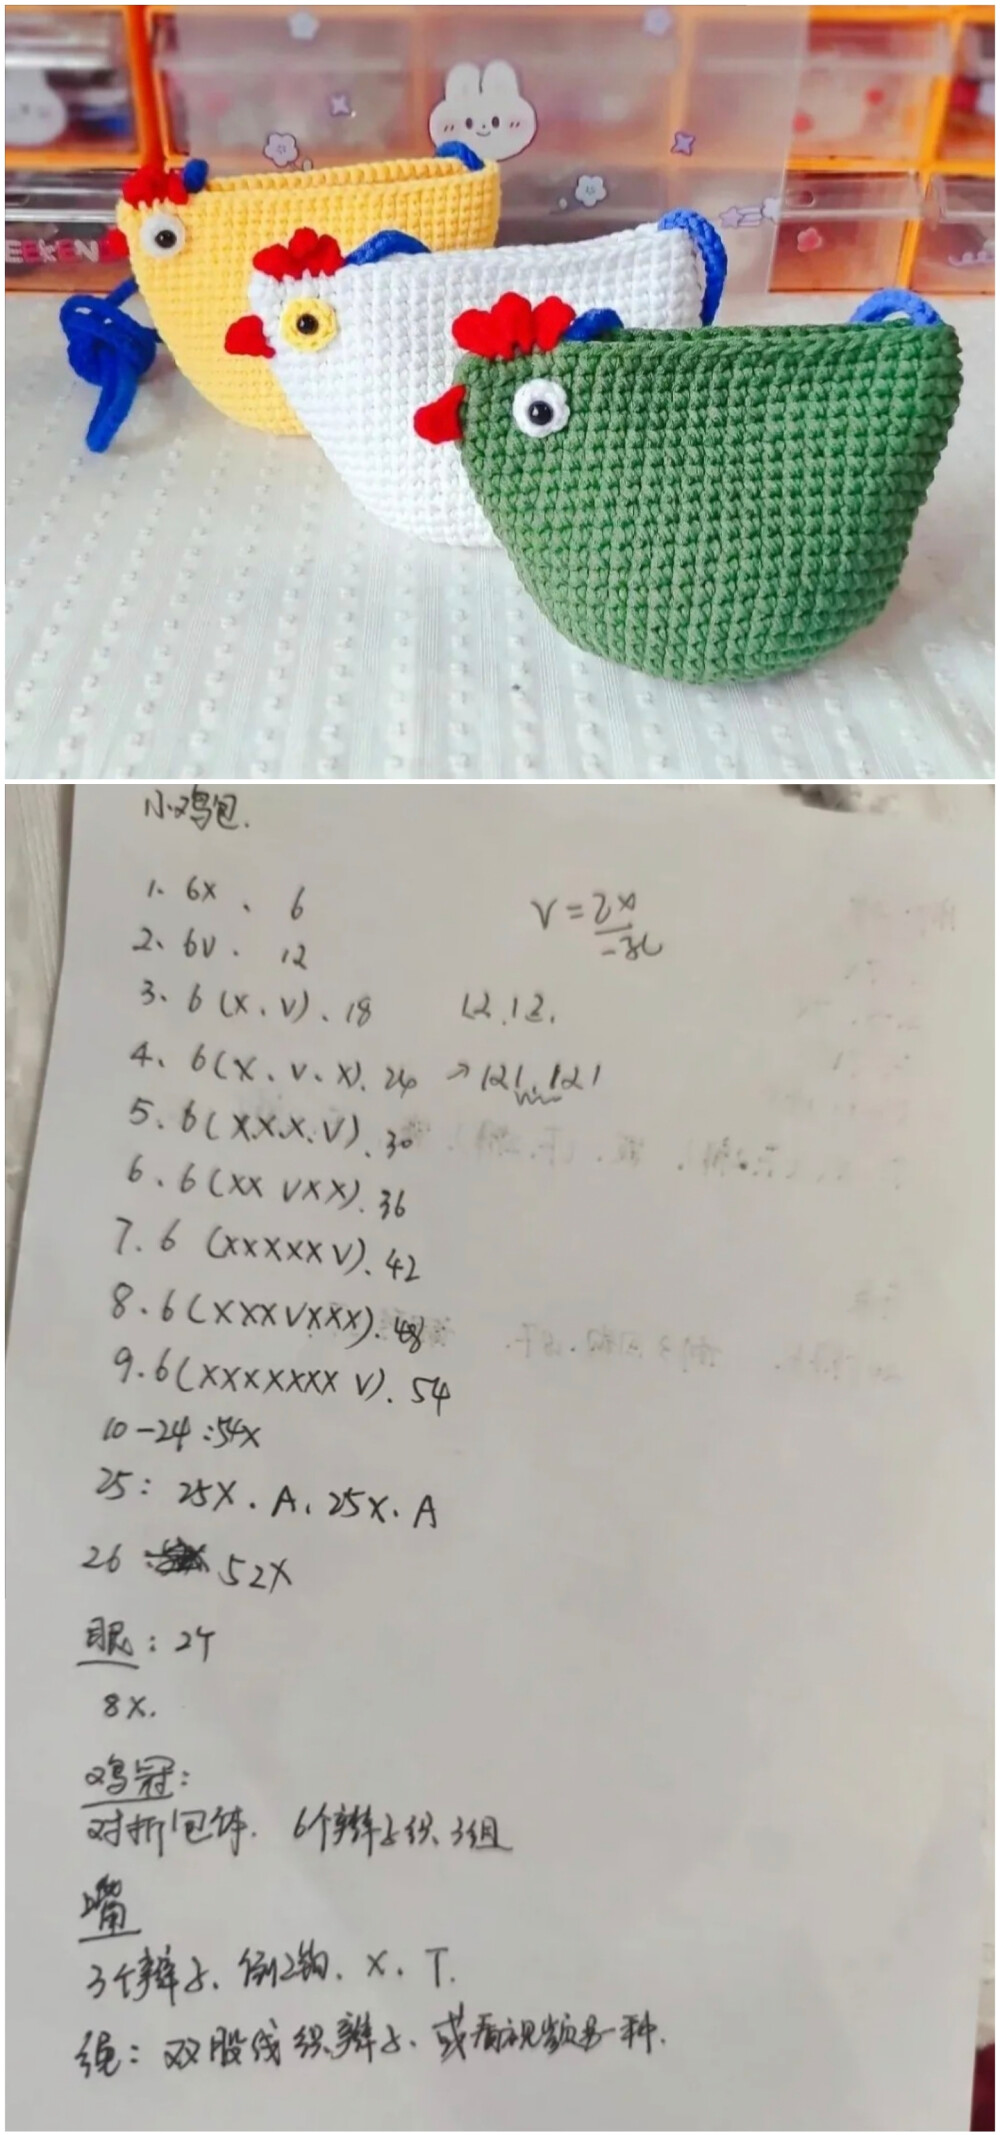 EEKEN
小鸡包.
1、6X、6
V=2X
一孔
2、6V. 12
3. 6(X.V)、18 12.12.
4、6(X、V、X).24 →121.121
5. 6(XXX.V).30
6. 6(XXVXX).36
7. 6(XXXXXV).42
8. 6(XXXVXXX).48
9. 6(XXXXXXXV).54
10-24:54X
25: 25X.A、25X.A
26: 52X
眼:2个
8X.
鸡冠:
对折包体. 6个辫子织3组
嘴
3个辫子、倒2钩、X、T.
绳:双股线织辫子、或看视频另一种.